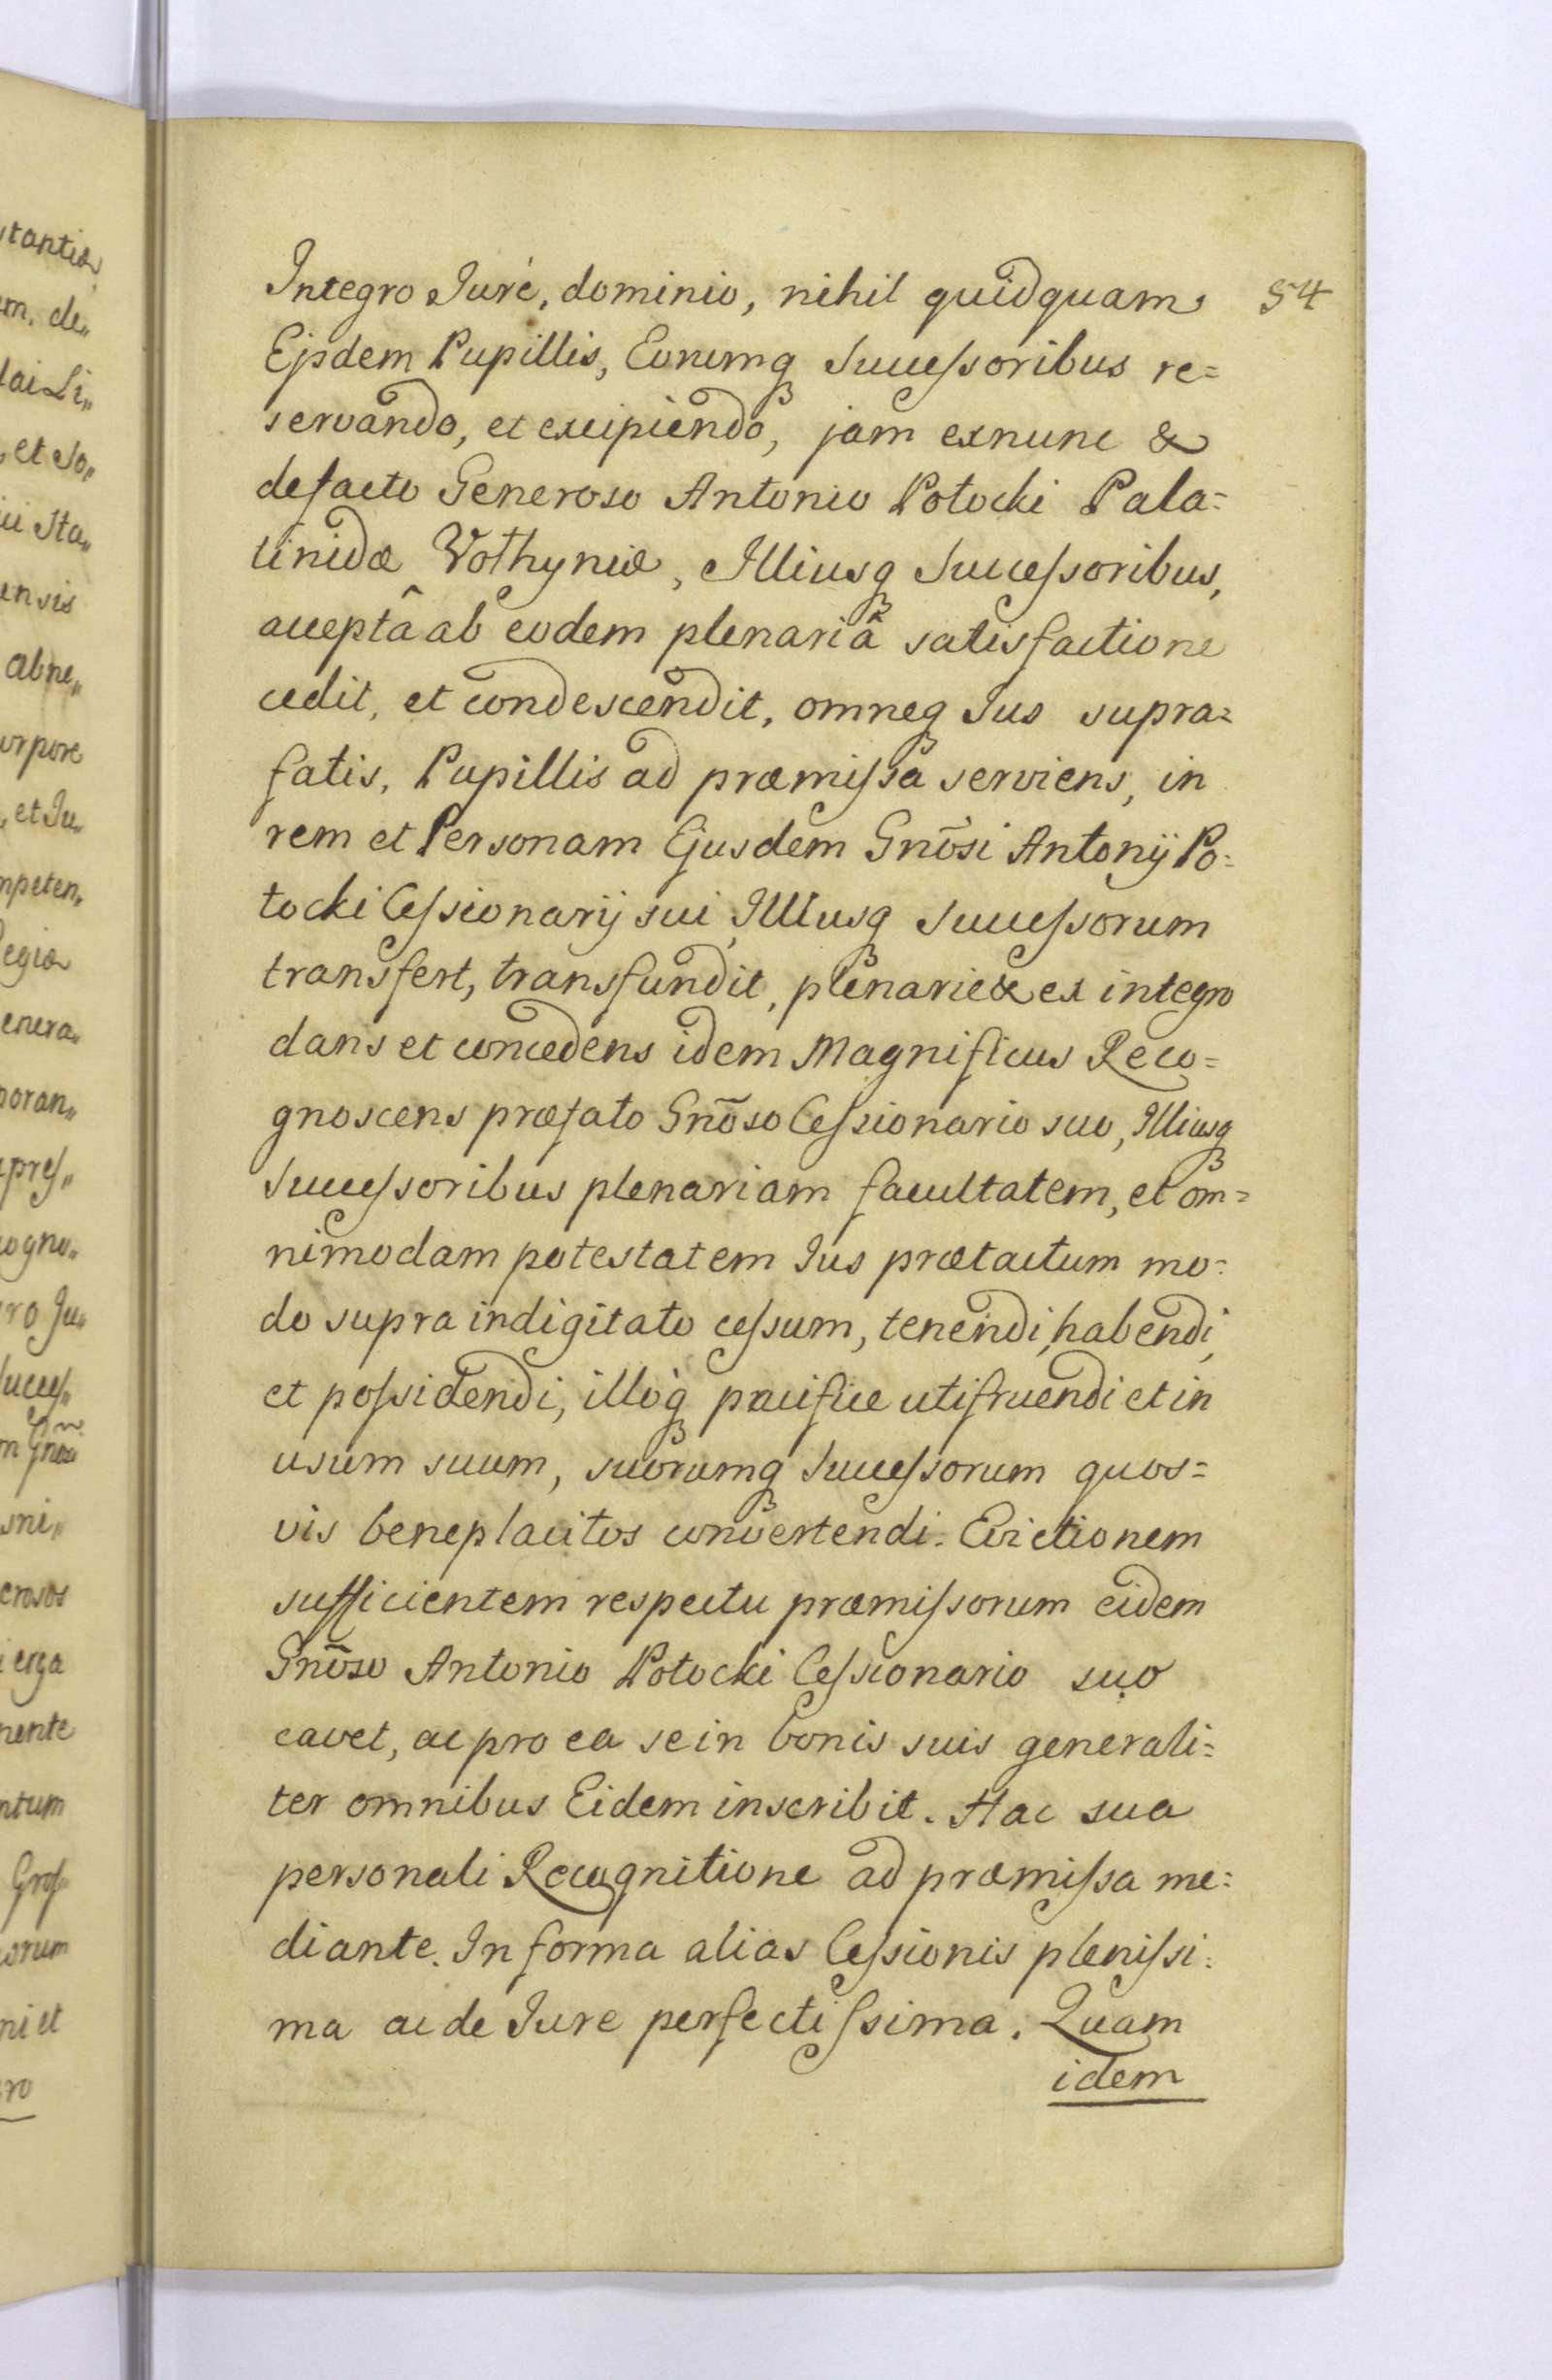 Integro Jure, dominio, nihil quidquam 54
Ejsdem Pupillis, Eorumq Successoribus re=
servando, et excipiendo, jam exnunc &
defacto Generoso Antonio Potocki Pala=
tinidæ Wolhyniæ, Illiusq Successoribus,
acceptâ ab eodem plenariâ satisfactione
cedit, et condescendit, omneq Jus supra=
fatis, Pupillis ad præmissa serviens, in
rem et Personam Ejusdem Gnōsi Antonij Po=
tocki Cessionarij sui, Illiusq Successorum
transfert, transfundit, plenarie & ex integro
dans et concedens idem Magnificus Reco=
gnoscens præfato Gnōso Cessionario suo, Illiusq
Successoribus plenariam facultatem, et om=
nimodam potestatem Jus prætactum mo=
do supra indigitato cessum, tenendi, habendi,
et possidendi, illoq pacifice utifruendi et in
usum suum, suorumq Successorum quos=
vis beneplacitos convertendi. Evictionem
sufficientem respectu præmissorum eidem
Gnōso Antonio Potocki Cessionario suo
cavet, ac pro ea se in bonis suis generali=
ter omnibus Eidem inscribit. Hac sua
personali Recognitione ad præmissa me=
diante. In forma alias Cessionis plenissi=
ma ac de Jure perfectissima. Quam
idem